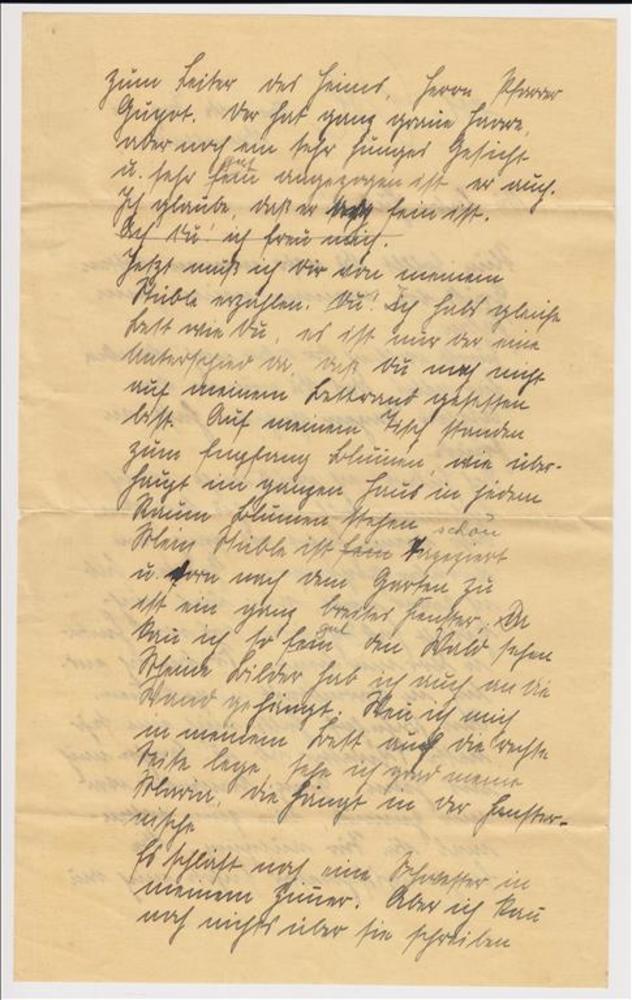 zum Leiter des Heims, Herrn Pfarrer
Guyot. Der hat ganz graue Haare,
aber noch ein sehr junges Gesicht
u. sehr fein gut angezogen ist er auch.
Ich glaube, daß er fein ist.
Ach Du! ich freu mich.
Jetzt muß ich Dir von meinem
Stüble erzählen. Du! Ich hab's gleiche
Bett wie Du, es ist nur der eine
Unterschied da, daß Du noch nicht
auf meinem Bettrand gesessen
bist. Auf meinem Tisch standen
zum Empfang Blumen, wie über-
haupt im ganzen Haus in jedem
Raum Blumen stehen
Mein Stüble ist fein schön tapeziert
u. vorn nach dem Garten zu
ist ein ganz breites Fenster. Da
kan̄ ich so fein gut den Wald sehen
Meine Bilder hab ich auch an die
Wand gehängt. Wen̄ ich mich
in meinem Bett auf die rechte
Seite lege, sehe ich grad meine
Maria, die hängt in der Fenster-
nische
Es schläft noch eine Schwester in
meinem Zim̄er. Aber ich kan̄
noch nichts über sie schreiben